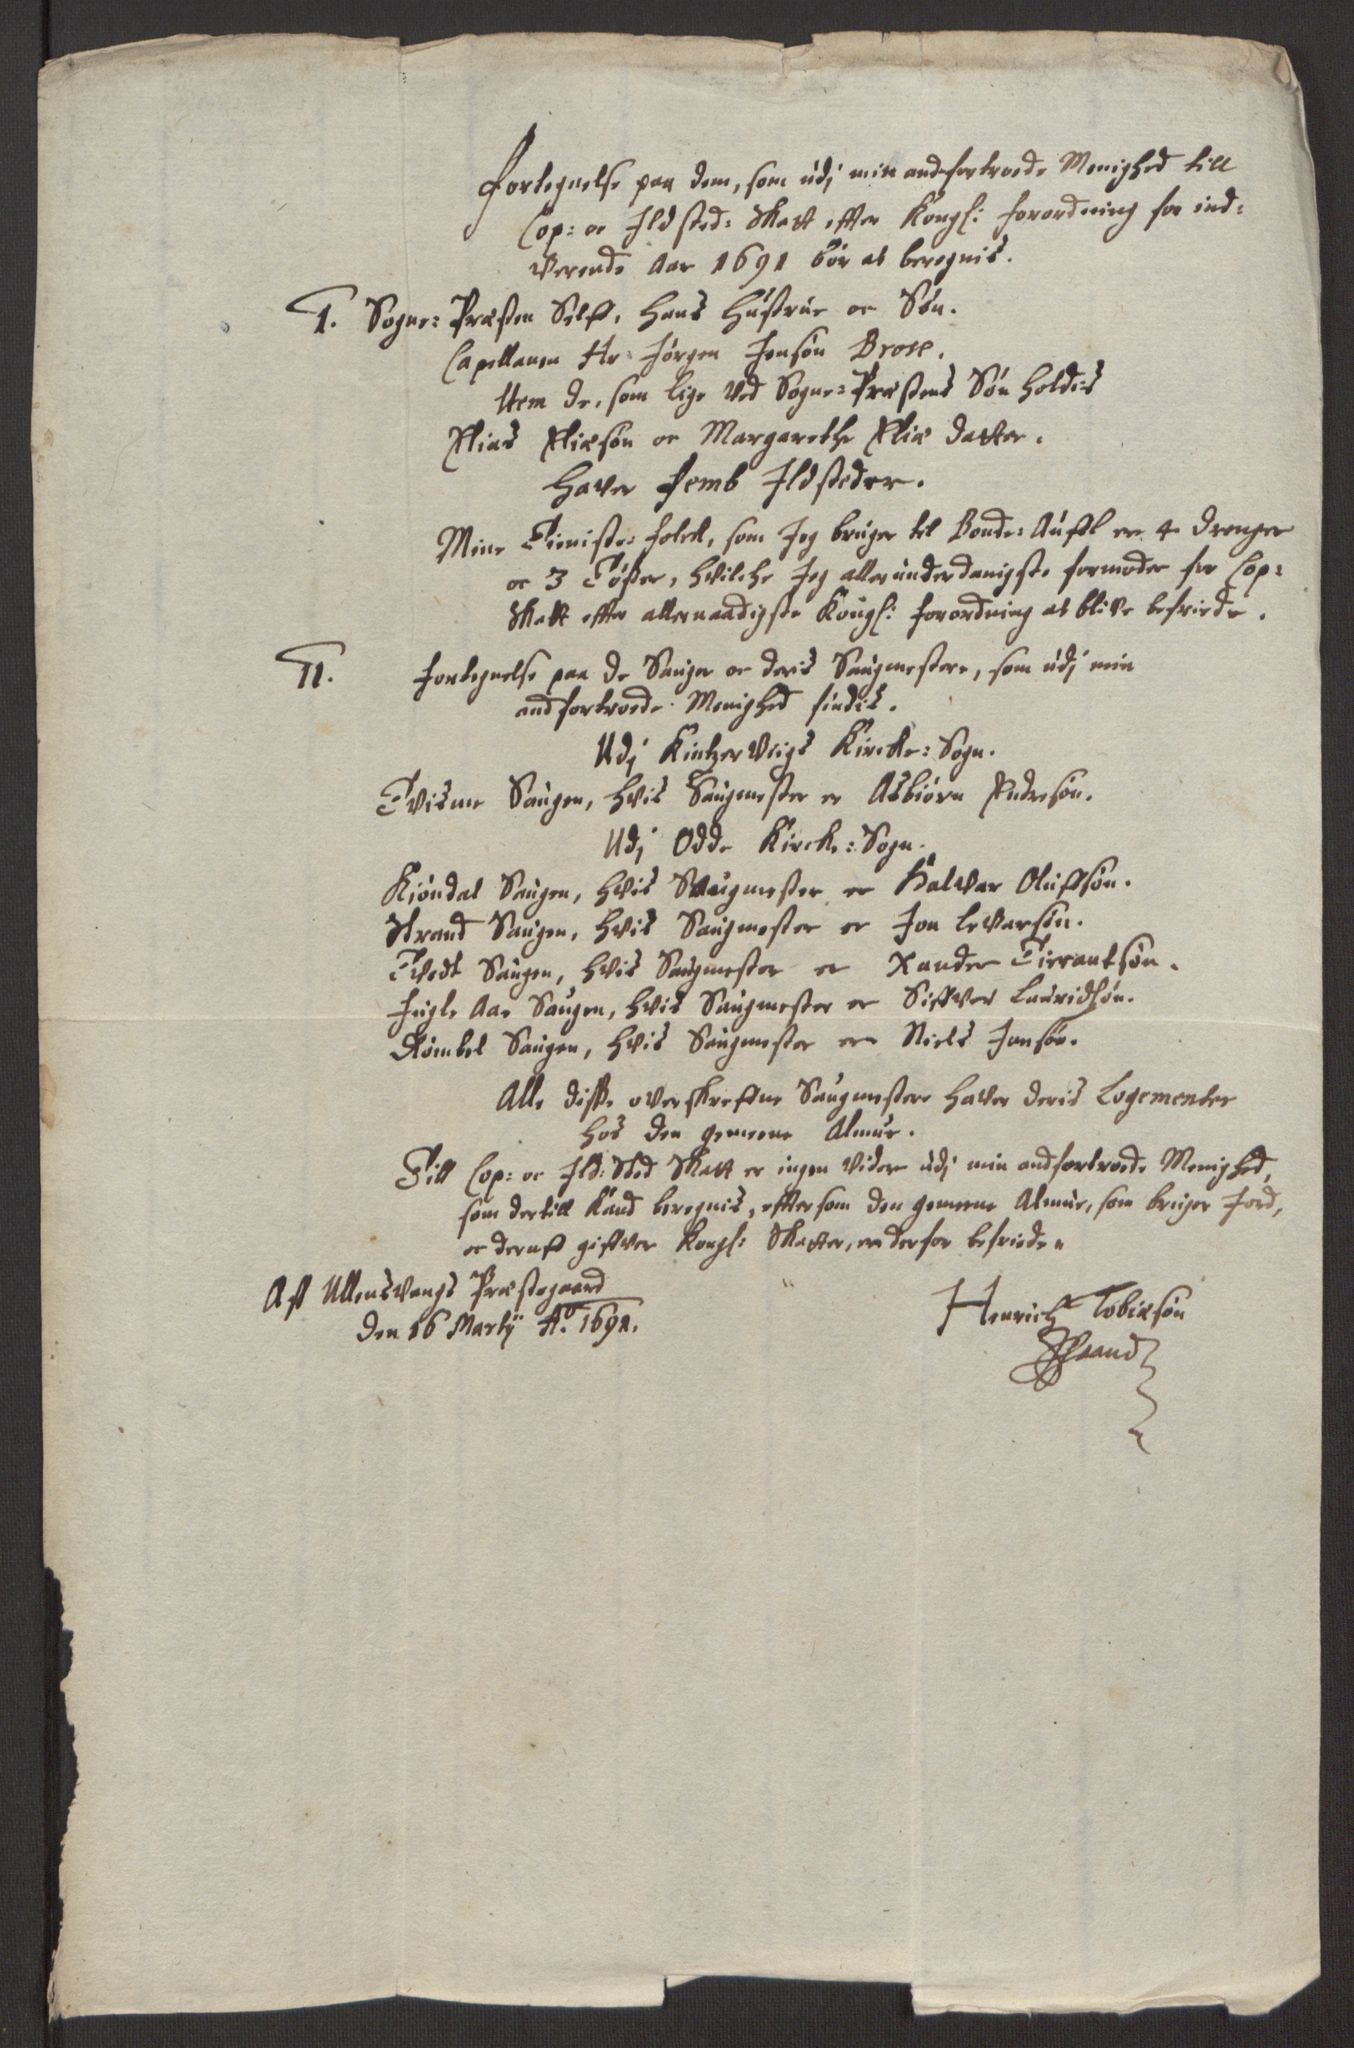 Fortegnelse paa dem, som udj min andfortroede Menighed till
Cop: oc Ildsted: Skatt effter Kongl: forordning for ind:
verende Aar 1691 bør at beregnis.
I. Sogne: Præsten Self, hans Hustrue oc Søn.
Capellanen Hr: Jørgen Jensøn Brose.
Item de, som lige ved Sogne: Præstens Søn holdis
Elias Eliæsøn oc Margarethe Eliæ datter.
Haver femb Ildsteder.
Mine Tieniste: folck, som Jeg bruger til Bonde: Aufl er 4 drenger
oc 3 Tøßer, hvilche Jeg allerunderdanigste formoder for Cop:
Skatt effter allernaadigste Kongl: forordning at blive befriede.
II. Fortegnelse paa de Sauger oc deris Saugmestere, som udj min
andfortroede Menighed findis.
Udj Kintzerviigs Kircke: Sogn.
Tvisme Saugen, hvis Saugmester er Asbiørn Endresøn.
Udj Odde Kircke: Sogn.
Kiøndal Saugen, hvis Saugmester er Halvar Olufsøn.
Strand Saugen, hvis Saugmester er Jon levarsøn.
Tvedt Saugen, hvis Saugmester er Xander Tierantsøn.
Jugle Aae Saugen, hvis Saugmester er Siffver Lauridsøn.
Kømbel Saugen, hvis Saugmester er Niels Jonsøn.
Alle disse overskrefne Saugmestere haver deris Logementer
hos den gemeene Almue.
Till Cop: oc Ild: Sted Skatt er ingen videre udj min andfortroede Menighed,
som dertill kand beregnis, effter som den gemeene Almue, som bruger Jord,
oc deraf giffver Kongl: Skatter, er derfor befriede.
Aff Ullensvangs Præstegaard
den 16 Martij Ao. 1691.
Henrich Tobiæsøn